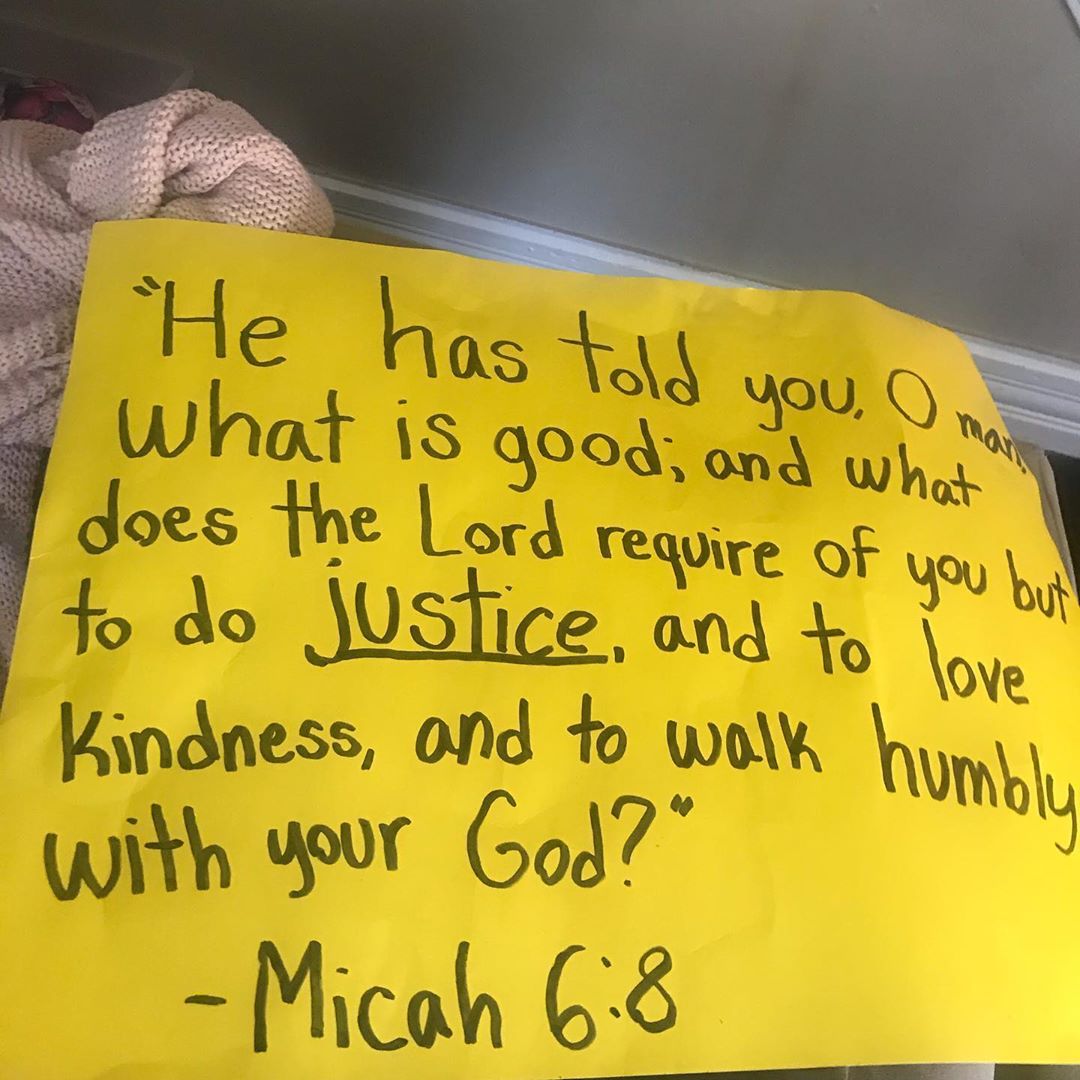 "He has told you, O man,
what is good; and what
does the Lord require of you but
to do justice, and to love
kindness, and to walk humbly
with your God?"
- Micah 6:8